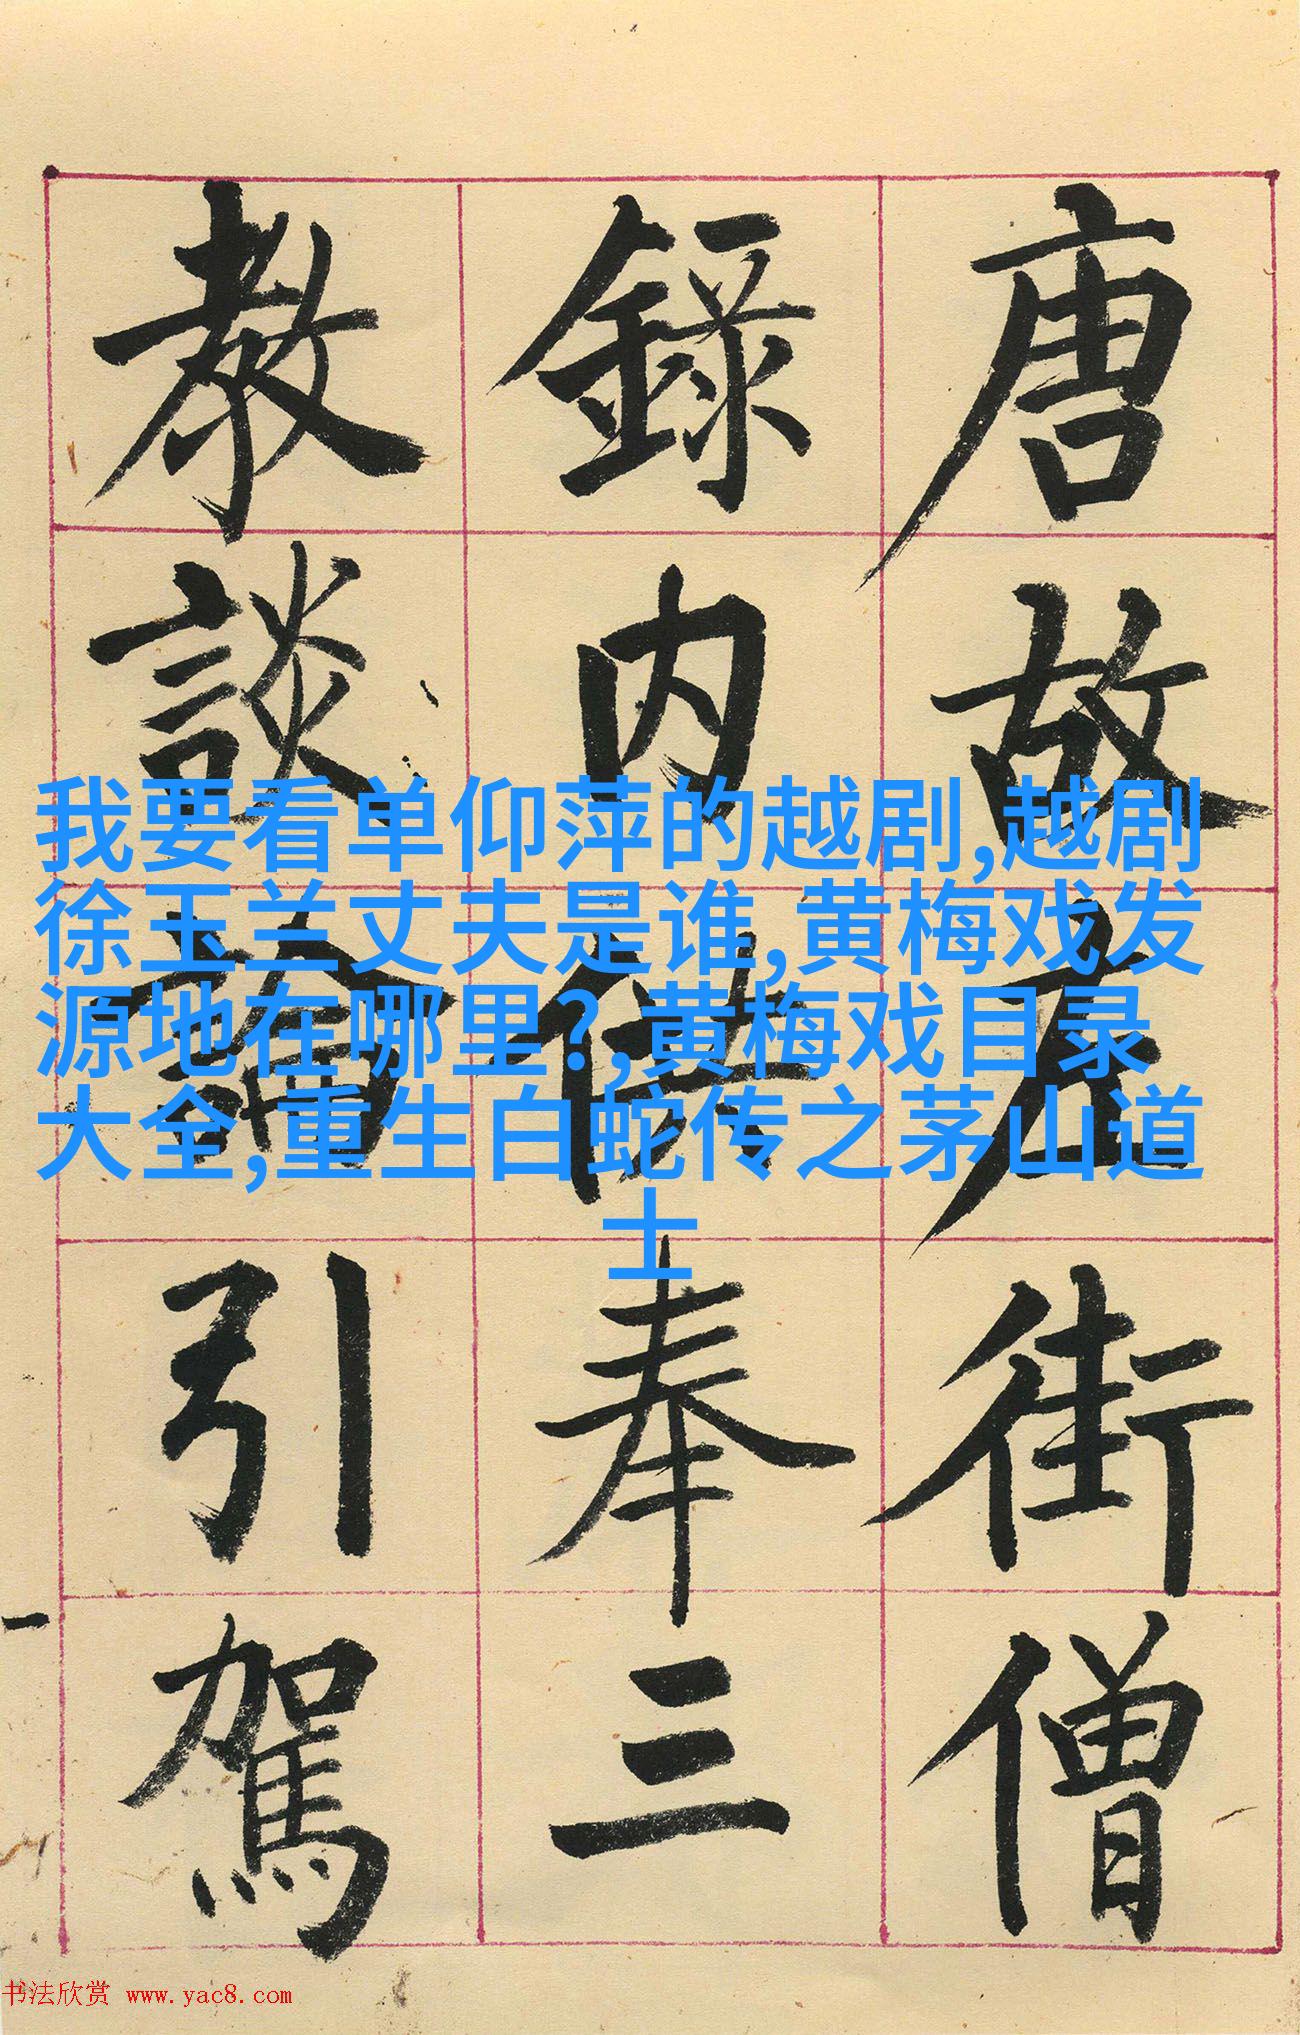 唐故左街僧
錄内供奉三
教談論引駕
我要看单仰萍的越剧,越剧
徐玉兰丈夫是谁,黄梅戏发
源地在哪里?,黄梅戏目录
大全,重生白蛇传之茅山道
士
书法欣赏 www.yac8.com